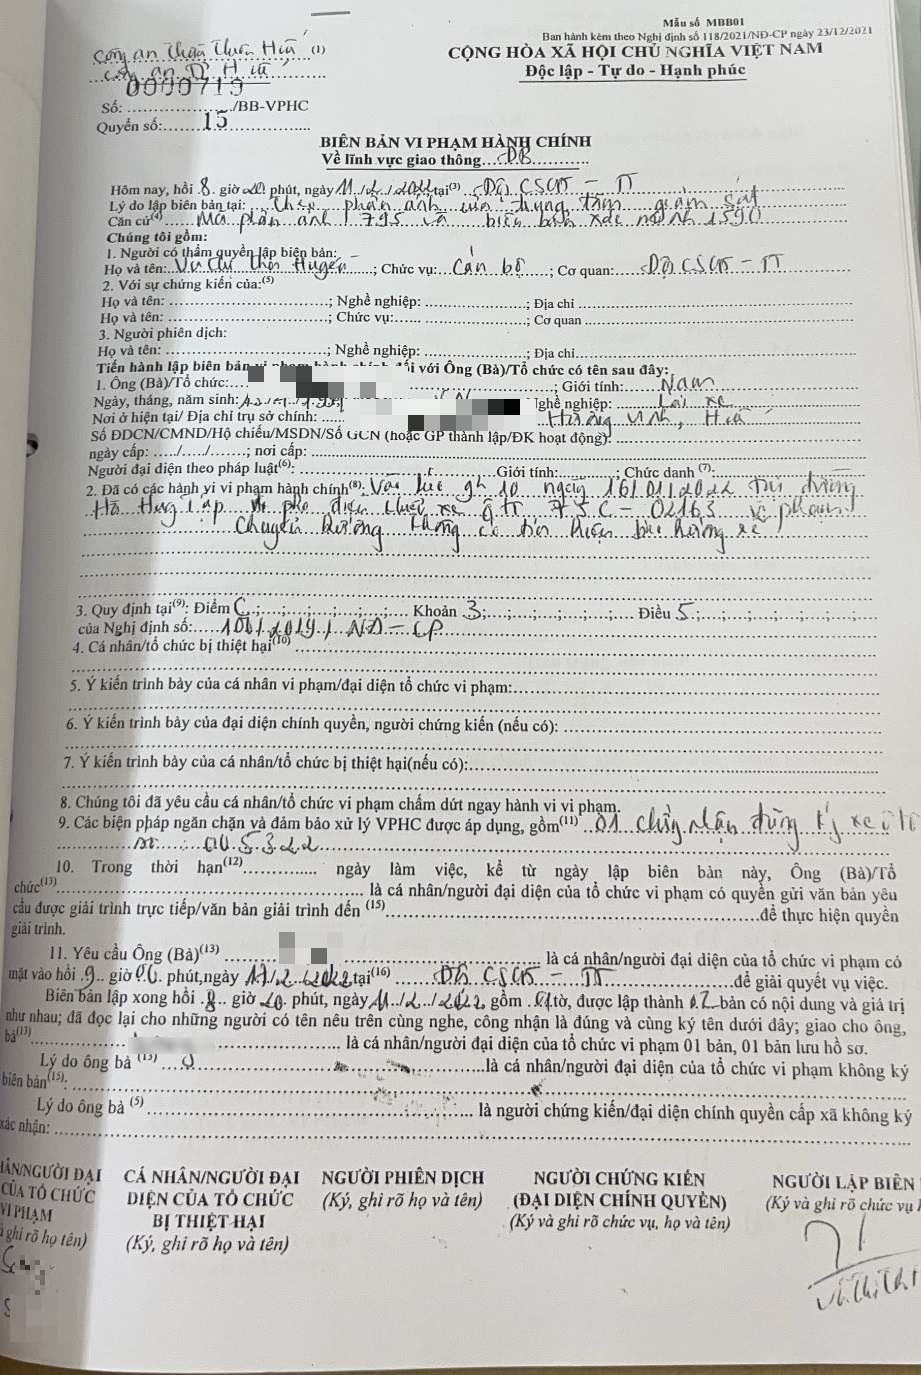 Mẫu số MBB01
Ban hành kèm theo Nghị định số 118/2021/NĐ-CP ngày 23/12/2021
Công an Thừa Thiên Huế (1)
Công an TP Huế
CỘNG HÒA XÃ HỘI CHỦ NGHĨA VIỆT NAM
Độc lập - Tự do - Hạnh phúc
0000719
Số: ..................../BB-VPHC
Quyển số:......15..............
BIÊN BẢN VI PHẠM HÀNH CHÍNH
Về lĩnh vực giao thông...ĐB............
Hôm nay, hồi 8 giờ 20 phút, ngày 11/2/2022 tại(3) Đội CSGT - TT
Lý do lập biên bản tại: Theo phản ánh của trung tâm giám sát
Căn cứ(4) Mã phản ánh 1795 và biên bản xác minh 1590
Chúng tôi gồm:
1. Người có thẩm quyền lập biên bản:
Họ và tên: ; Chức vụ: Cán bộ ; Cơ quan: Đội CSGT - TT
2. Với sự chứng kiến của:(5)
Họ và tên: ..............................; Nghề nghiệp: ...................; Địa chỉ ....................
Họ và tên: ..............................; Chức vụ:...................; Cơ quan ....................
3. Người phiên dịch:
Họ và tên:..............................; Nghề nghiệp: ...................; Địa chỉ....................
Tiến hành lập biên bản vi phạm hành chính đối với Ông (Bà)/Tổ chức có tên sau đây:
1. Ông (Bà)/Tổ chức:.... ; Giới tính: Nam
Ngày, tháng, năm sinh: Nghề nghiệp: Lái xe
Nơi ở hiện tại/ Địa chỉ trụ sở chính: Hương Vinh, Huế
Số ĐDCN/CMND/Hộ chiếu/MSDN/Số GCN (hoặc GP thành lập/ĐK hoạt động):
ngày cấp: ...../...../.......; nơi cấp:
Người đại diện theo pháp luật(6): Giới tính: ; Chức danh (7):
2. Đã có các hành vi vi phạm hành chính(8): Vào lúc 9h10 ngày 16/01/2022 tại đường
Hà Huy Tập điều khiển xe ô tô 75C - 02163 vi phạm
Chuyển hướng không có tín hiệu báo hướng rẽ
3. Quy định tại(9): Điểm C.;....;....;....;....;.... Khoản 3;....;....;....;....;.... Điều 5.;....;....;....;....;....
của Nghị định số:.....100/2019/NĐ-CP
4. Cá nhân/tổ chức bị thiệt hại(10)
5. Ý kiến trình bày của cá nhân vi phạm/đại diện tổ chức vi phạm:
6. Ý kiến trình bày của đại diện chính quyền, người chứng kiến (nếu có):
7. Ý kiến trình bày của cá nhân/tổ chức bị thiệt hại(nếu có):
8. Chúng tôi đã yêu cầu cá nhân/tổ chức vi phạm chấm dứt ngay hành vi vi phạm.
9. Các biện pháp ngăn chặn và đảm bảo xử lý VPHC được áp dụng, gồm(11) 01 chứng nhận đăng ký xe ô tô
số: 005322
10. Trong thời hạn(12).............. ngày làm việc, kể từ ngày lập biên bản này, Ông (Bà)/Tổ
chức(13)........................................ là cá nhân/người đại diện của tổ chức vi phạm có quyền gửi văn bản yêu
cầu được giải trình trực tiếp/văn bản giải trình đến (15)........................................để thực hiện quyền
giải trình.
11. Yêu cầu Ông (Bà)(13) ........................................ là cá nhân/người đại diện của tổ chức vi phạm có
mặt vào hồi 9 giờ 00 phút,ngày 17/2/2022 tại(16) Đội CSGT - TT để giải quyết vụ việc.
Biên bản lập xong hồi 8 giờ 20 phút, ngày 11/2/2022, gồm 01 tờ, được lập thành 02 bản có nội dung và giá trị
như nhau; đã đọc lại cho những người có tên nêu trên cùng nghe, công nhận là đúng và cùng ký tên dưới đây; giao cho ông,
bà(13)........................................ là cá nhân/người đại diện của tổ chức vi phạm 01 bản, 01 bản lưu hồ sơ.
Lý do ông bà (13) ........................................là cá nhân/người đại diện của tổ chức vi phạm không ký
biên bản(15):
Lý do ông bà (5)........................................ là người chứng kiến/đại diện chính quyền cấp xã không ký
xác nhận:
NHÂN/NGƯỜI ĐẠI
CỦA TỔ CHỨC
VI PHẠM
ghi rõ họ tên)
CÁ NHÂN/NGƯỜI ĐẠI
DIỆN CỦA TỔ CHỨC
BỊ THIỆT HẠI
(Ký, ghi rõ họ và tên)
NGƯỜI PHIÊN DỊCH
(Ký, ghi rõ họ và tên)
NGƯỜI CHỨNG KIẾN
(ĐẠI DIỆN CHÍNH QUYỀN)
(Ký và ghi rõ chức vụ, họ và tên)
NGƯỜI LẬP BIÊN
(Ký và ghi rõ chức vụ